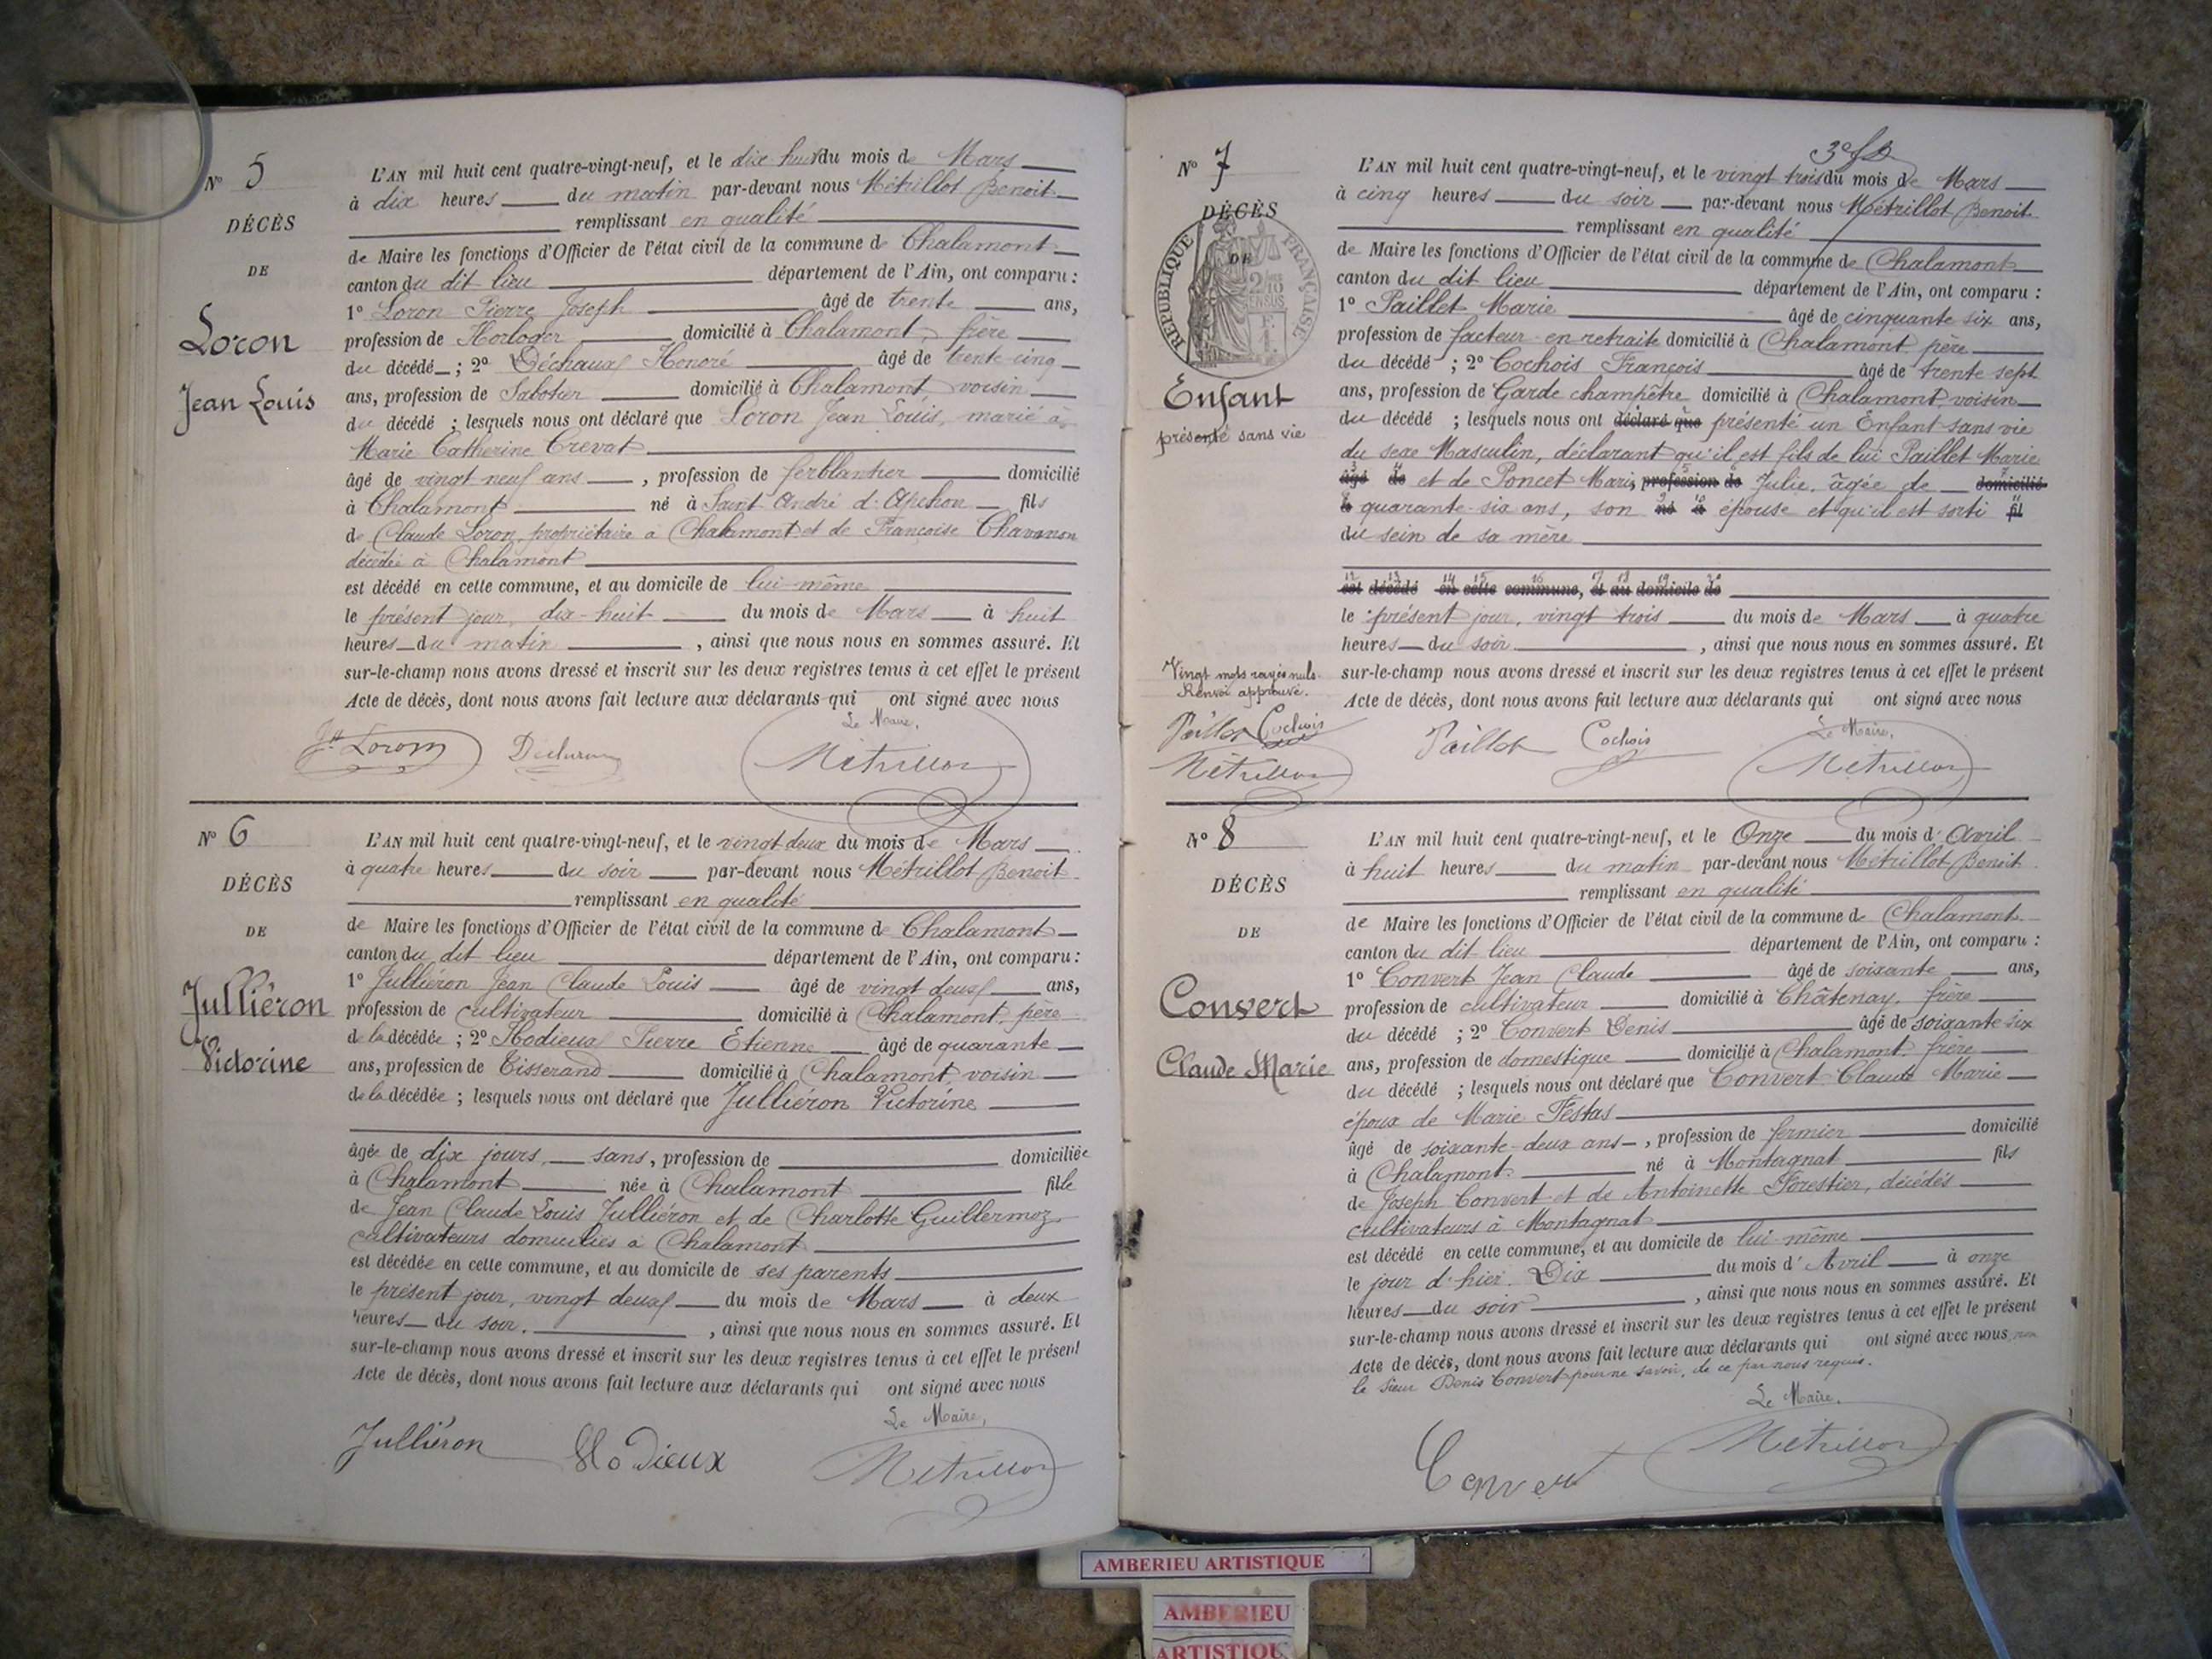 N° 5
DÉCÈS
DE
Loron
Jean Louis
L'AN mil huit cent quatre-vingt-neuf, et le dix huit du mois de Mars
à dix heures du matin par-devant nous Métrillot Benoit
remplissant en qualité
de Maire les fonctions d'Officier de l'état civil de la commune de Chalamont
canton du dit lieu département de l'Ain, ont comparu :
1° Loron Pierre Joseph âgé de trente ans,
profession de Horloger domicilié à Chalamont, frère
du décédé ; 2° Déchaux Honoré âgé de trente cinq
ans, profession de Sabotier domicilié à Chalamont voisin
du décédé ; lesquels nous ont déclaré que Loron Jean Louis, marié à
Marie Catherine Crevat
âgé de vingt neuf ans, profession de ferblantier domicilié
à Chalamont né à Saint André d'Apchon fils
de Claude Loron, propriétaire à Chalamont et de Françoise Chavanon
décédée à Chalamont
est décédé en cette commune, et au domicile de lui-même
le présent jour, dix-huit du mois de Mars à huit
heures du matin, ainsi que nous nous en sommes assuré. Et
sur-le-champ nous avons dressé et inscrit sur les deux registres tenus à cet effet le présent
Acte de décès, dont nous avons fait lecture aux déclarants qui ont signé avec nous
Le Maire,
Jh Loron
Métrillot
N° 6
DÉCÈS
DE
Julliéron
Victorine
L'AN mil huit cent quatre-vingt-neuf, et le vingt deux du mois de Mars
à quatre heures du soir par-devant nous Métrillot Benoit
remplissant en qualité
de Maire les fonctions d'Officier de l'état civil de la commune de Chalamont
canton du dit lieu département de l'Ain, ont comparu :
1° Julliéron Jean Claude Louis âgé de vingt deux ans,
profession de cultivateur domicilié à Chalamont, père
de la décédée ; 2° Hodieux Pierre Etienne âgé de quarante
ans, profession de Tisserand domicilié à Chalamont, voisin
de la décédée ; lesquels nous ont déclaré que Julliéron Victorine
âgée de dix jours, sans, profession de domiciliée
à Chalamont née à Chalamont fille
de Jean Claude Louis Julliéron et de Charlotte Guillermoz
cultivateurs domiciliés à Chalamont
est décédée en cette commune, et au domicile de ses parents
le présent jour, vingt deux du mois de Mars à deux
heures du soir, ainsi que nous nous en sommes assuré. Et
sur-le-champ nous avons dressé et inscrit sur les deux registres tenus à cet effet le présent
Acte de décès, dont nous avons fait lecture aux déclarants qui ont signé avec nous
Le Maire,
Julliéron
Hodieux
Métrillot
N° 7
DÉCÈS
DE
RÉPUBLIQUE FRANÇAISE
Enfant
présenté sans vie
L'AN mil huit cent quatre-vingt-neuf, et le vingt trois du mois de Mars
à cinq heures du soir par-devant nous Métrillot Benoit
remplissant en qualité
de Maire les fonctions d'Officier de l'état civil de la commune de Chalamont
canton du dit lieu département de l'Ain, ont comparu :
1° Paillet Marie âgé de cinquante six ans,
profession de facteur en retraite domicilié à Chalamont père
du décédé ; 2° Cochois François âgé de trente sept
ans, profession de Garde champêtre domicilié à Chalamont, voisin
du décédé ; lesquels nous ont déclaré que présenté un Enfant sans vie
du sexe Masculin, déclarant qu'il est fils de lui Paillet Marie
âgé de et de Poncet Marie profession de Julie, âgée de domicilié
à quarante-six ans, son né à épouse et qu'il est sorti fil
du sein de sa mère
est décédé en cette commune, et au domicile de
le présent jour, vingt trois du mois de Mars à quatre
heures du soir, ainsi que nous nous en sommes assuré. Et
sur-le-champ nous avons dressé et inscrit sur les deux registres tenus à cet effet le présent
Acte de décès, dont nous avons fait lecture aux déclarants qui ont signé avec nous
Vingt mots rayés nuls.
Renvoi approuvé.
Paillet Cochois
Métrillot
Paillet
Cochois
Le Maire,
Métrillot
N° 8
DÉCÈS
DE
Convert
Claude Marie
L'AN mil huit cent quatre-vingt-neuf, et le Onze du mois d'Avril
à huit heures du matin par-devant nous Métrillot Benoit
remplissant en qualité
de Maire les fonctions d'Officier de l'état civil de la commune de Chalamont
canton du dit lieu département de l'Ain, ont comparu :
1° Convert Jean Claude âgé de soixante ans,
profession de cultivateur domicilié à Châtenay, frère
du décédé ; 2° Convert Denis âgé de soixante six
ans, profession de domestique domicilié à Chalamont, frère
du décédé ; lesquels nous ont déclaré que Convert Claude Marie
époux de Marie Festas
âgé de soixante-deux ans, profession de fermier domicilié
à Chalamont né à Montagnat fils
de Joseph Convert et de Antoinette Forestier, décédés
cultivateurs à Montagnat
est décédé en cette commune, et au domicile de lui-même
le jour d'hier Dix du mois d'Avril à onze
heures du soir, ainsi que nous nous en sommes assuré. Et
sur-le-champ nous avons dressé et inscrit sur les deux registres tenus à cet effet le présent
Acte de décès, dont nous avons fait lecture aux déclarants qui ont signé avec nous non
le sieur Denis Convert pour ne savoir, de ce par nous requis.
Le Maire,
Convert
Métrillot
AMBERIEU ARTISTIQUE
AMBERIEU
ARTISTIQUE